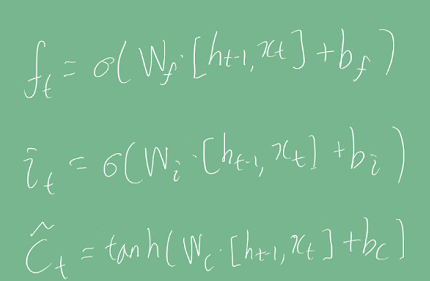 f_t = σ(W_f · [h_{t-1}, x_t] + b_f)
i_t = σ(W_i · [h_{t-1}, x_t] + b_i)
Ĉ_t = tanh(W_c · [h_{t-1}, x_t] + b_c)